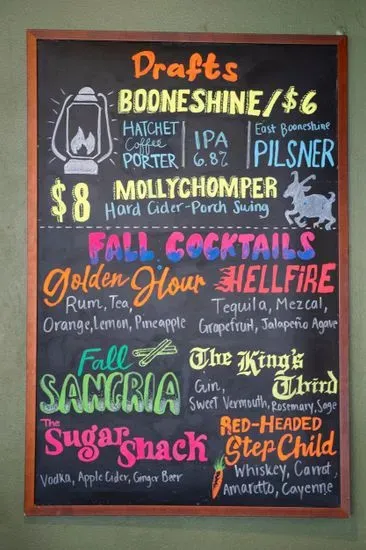 Drafts
BOONESHINE/$6
HATCHET
Coffee
PORTER
IPA
6.8%
East Booneshine
PILSNER
$8
MOLLYCHOMPER
Hard Cider-Porch Swing
FALL COCKTAILS
Golden Hour
Rum, Tea,
Orange, Lemon, Pineapple
HELLFIRE
Tequila, Mezcal,
Grapefruit, Jalapeño Agave
Fall
SANGRIA
The King's
Third
Gin,
Sweet Vermouth, Rosemary, Sage
The
Sugar Shack
Vodka, Apple Cider, Ginger Beer
RED-HEADED
Step Child
Whiskey, Carrot,
Amaretto, Cayenne